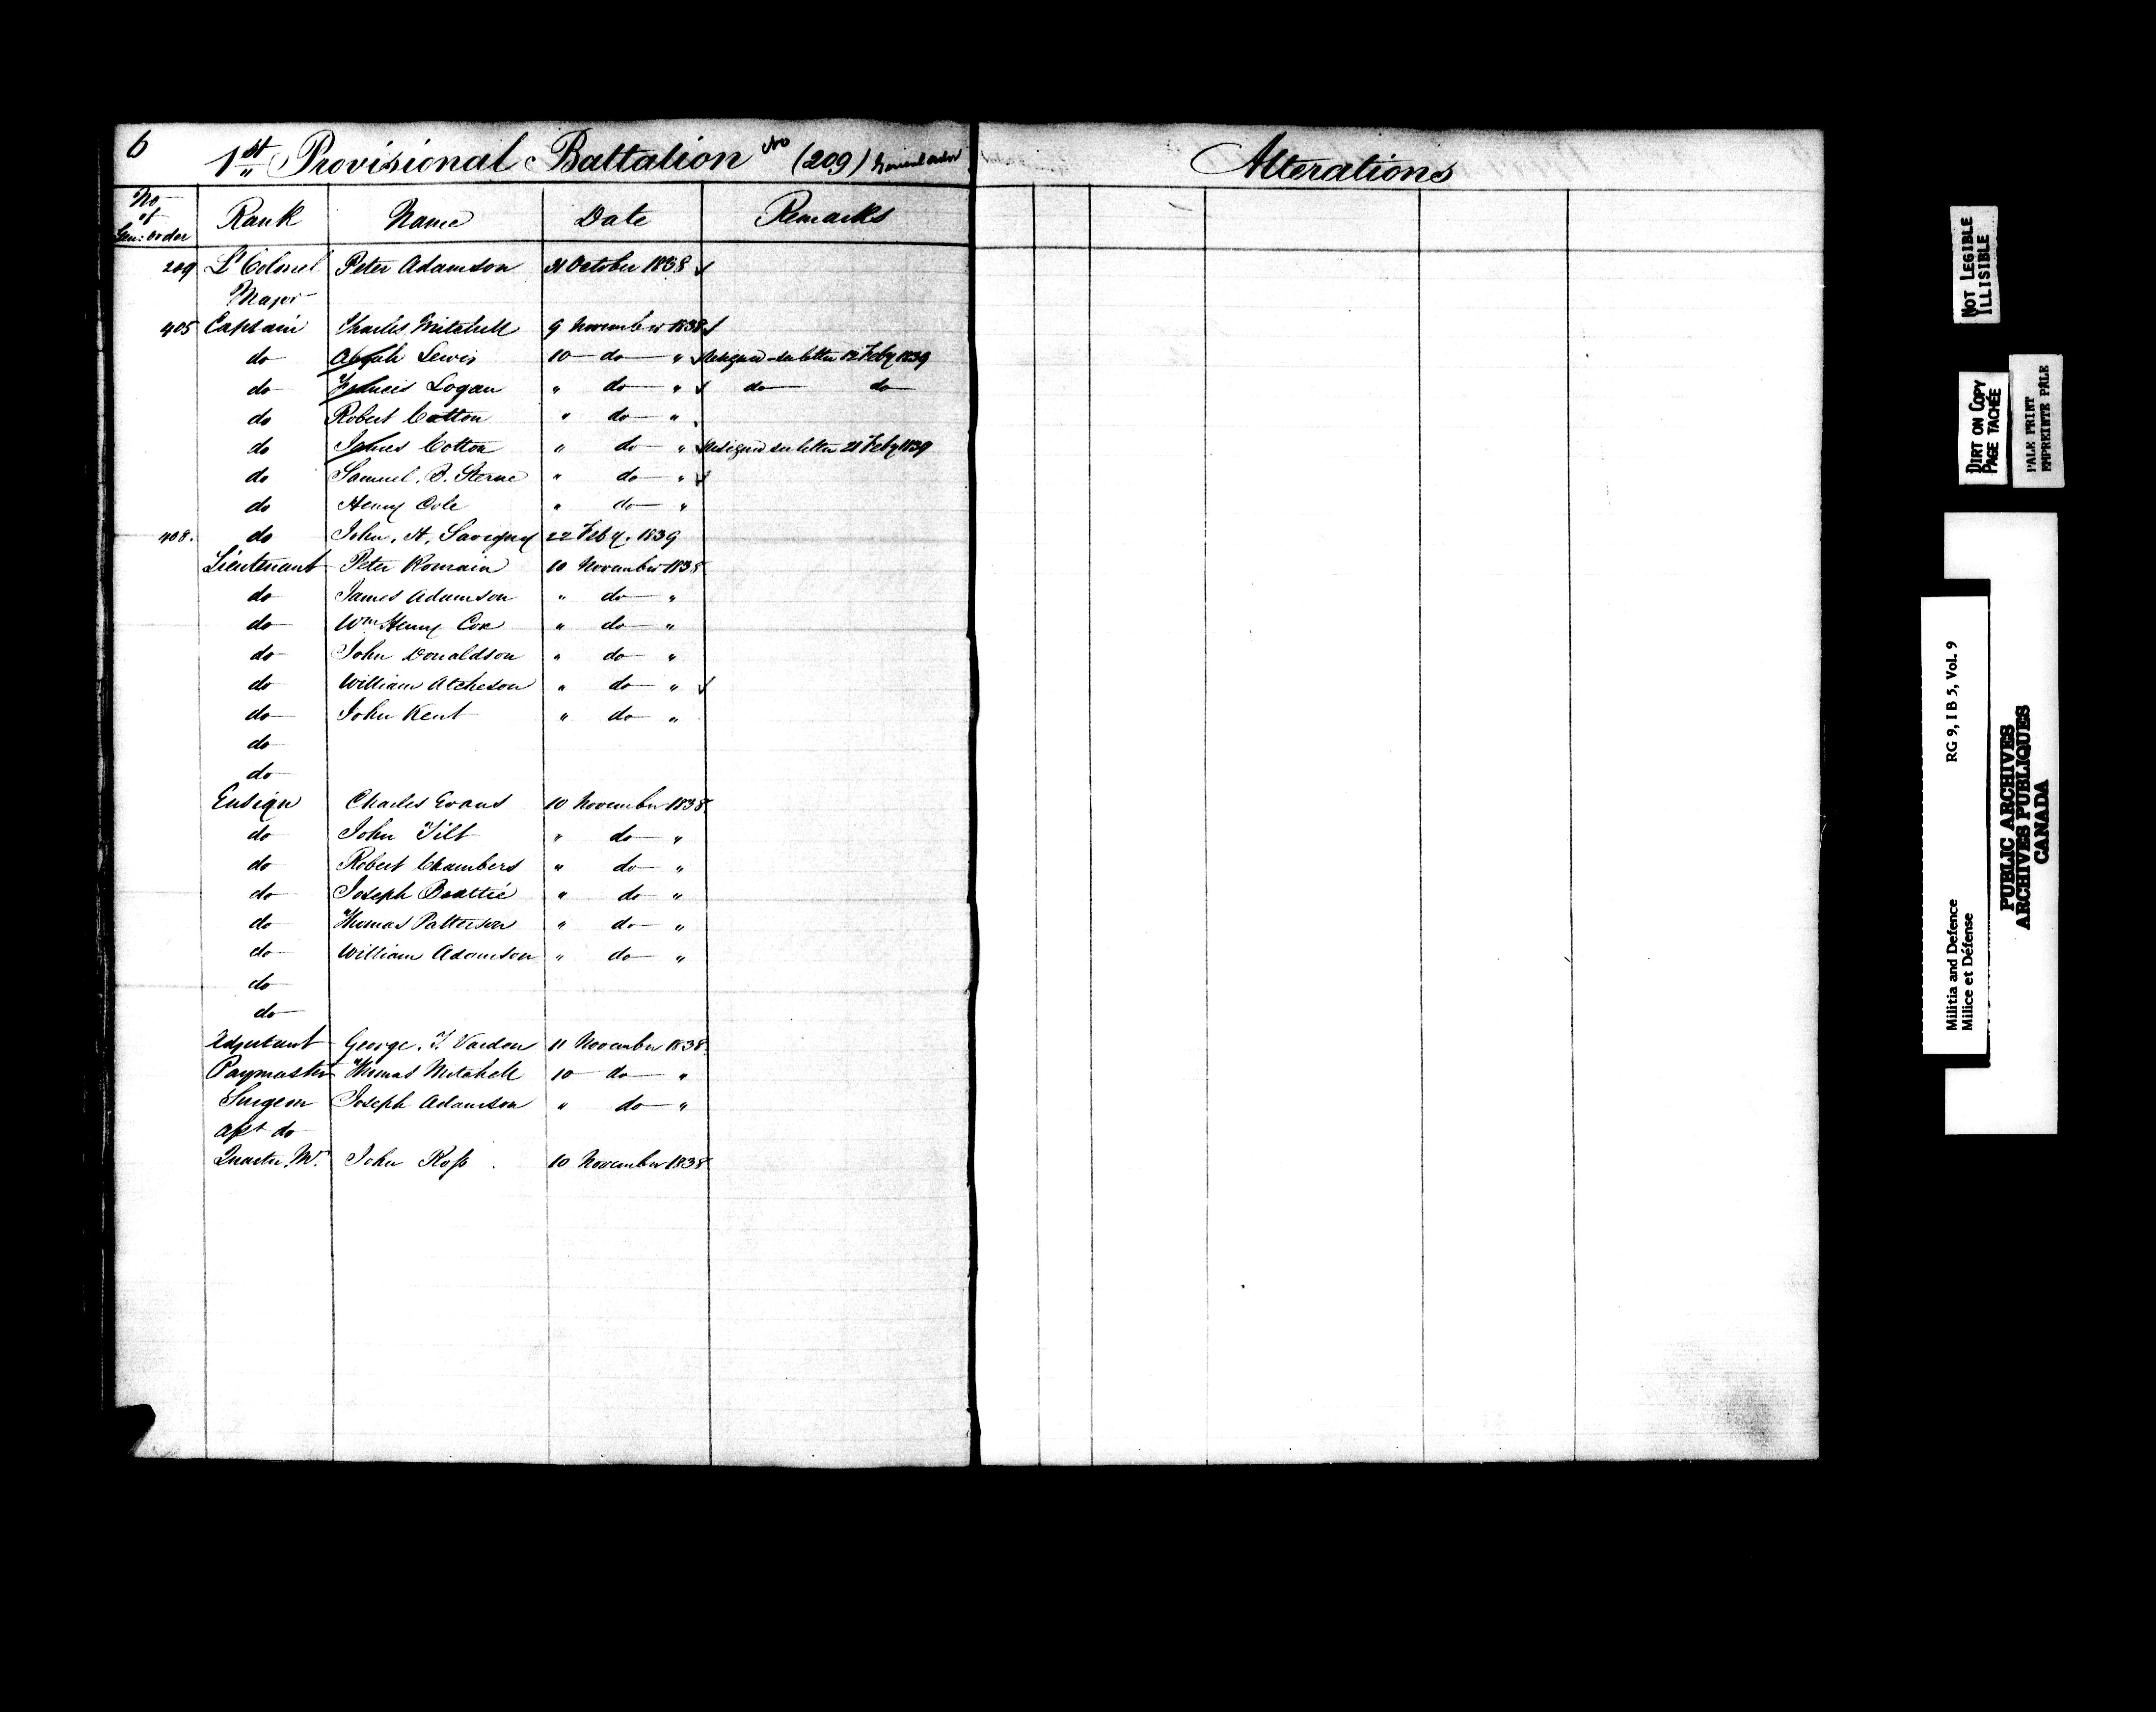 6 1st Provisional Battalion No (209) General order
No of Gen: order Rank Name Date Remarks
209 Lt Colonel Peter Adamson 31 October 1838
Major
405 Captain Charles Mitchell 9 November 1838
do Abijah Lewis 10 do " Resigned see letter 12 Feby 1839
do Francis Logan " do " do do
do Robert Cotton " do "
do James Cotton " do " Resigned see letter 21 Feby 1839
do Samuel. B. Sterne " do "
do Henry Cole " do "
408. do John. H. Savigny 22 Feby. 1839
Lieutenant Peter Romain 10 November 1838
do James Adamson " do "
do Wm Henry Cox " do "
do John Donaldson " do "
do William Atcheson " do "
do John Kent " do "
do
do
Ensign Charles Evans 10 November 1838
do John Tilt " do "
do Robert Chambers " do "
do Joseph Beattie " do "
do Thomas Patterson " do "
do William Adamson " do "
do
do
Adjutant George. T. Vardon 11 November 1838
Paymaster Thomas Mitchell 10 do "
Surgeon Joseph Adamson " do "
Asst do
Quarter Mr. John Ross 10 November 1838
Alterations
NOT LEGIBLE
ILLISIBLE
DIRT ON COPY
PAGE TACHÉE
PALE PRINT
EMPREINTE PÂLE
RG 9, I B 5, Vol. 9
Militia and Defence
Milice et Défense
PUBLIC ARCHIVES
ARCHIVES PUBLIQUES
CANADA